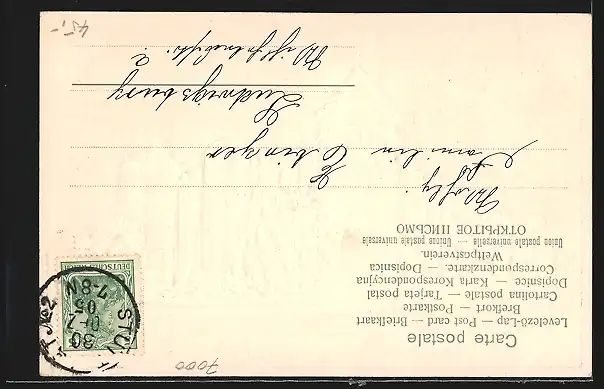 7000
Carte postale
Levelező-Lap — Post card — Briefkaart
Brefkort — Postkarte
Cartolina postale — Tarjeta postal
Dopisnice — Karta Korespondencyjna
Correspondenzkarte. — Dopisnica
Weltpostverein.
Union postale universelle — Unione postale universale
ОТКРЫТОЕ ПИСЬМО
DEUTSCHES REICH
STU
30
05
7-8N
No2
Familie Ebinger
Ludwigsburg
2
45,-